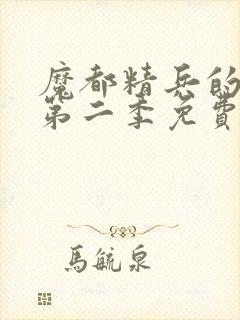 魔都精兵的
第二季免費
馬毓泉